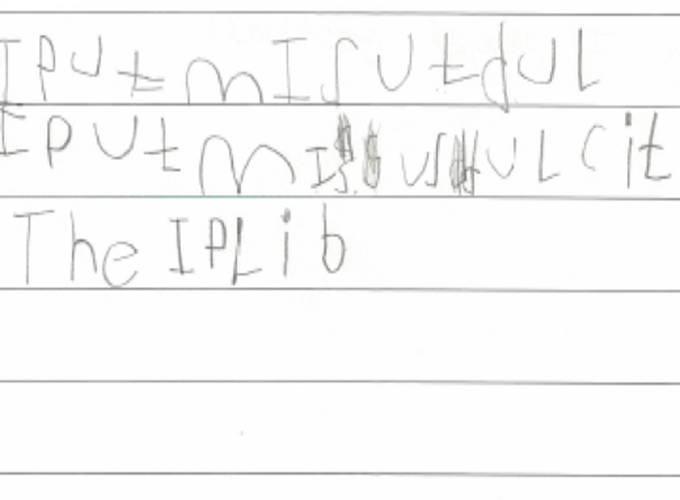 IPUt mISUtdUL
IPUt mIS USUL Cit
The IPLib